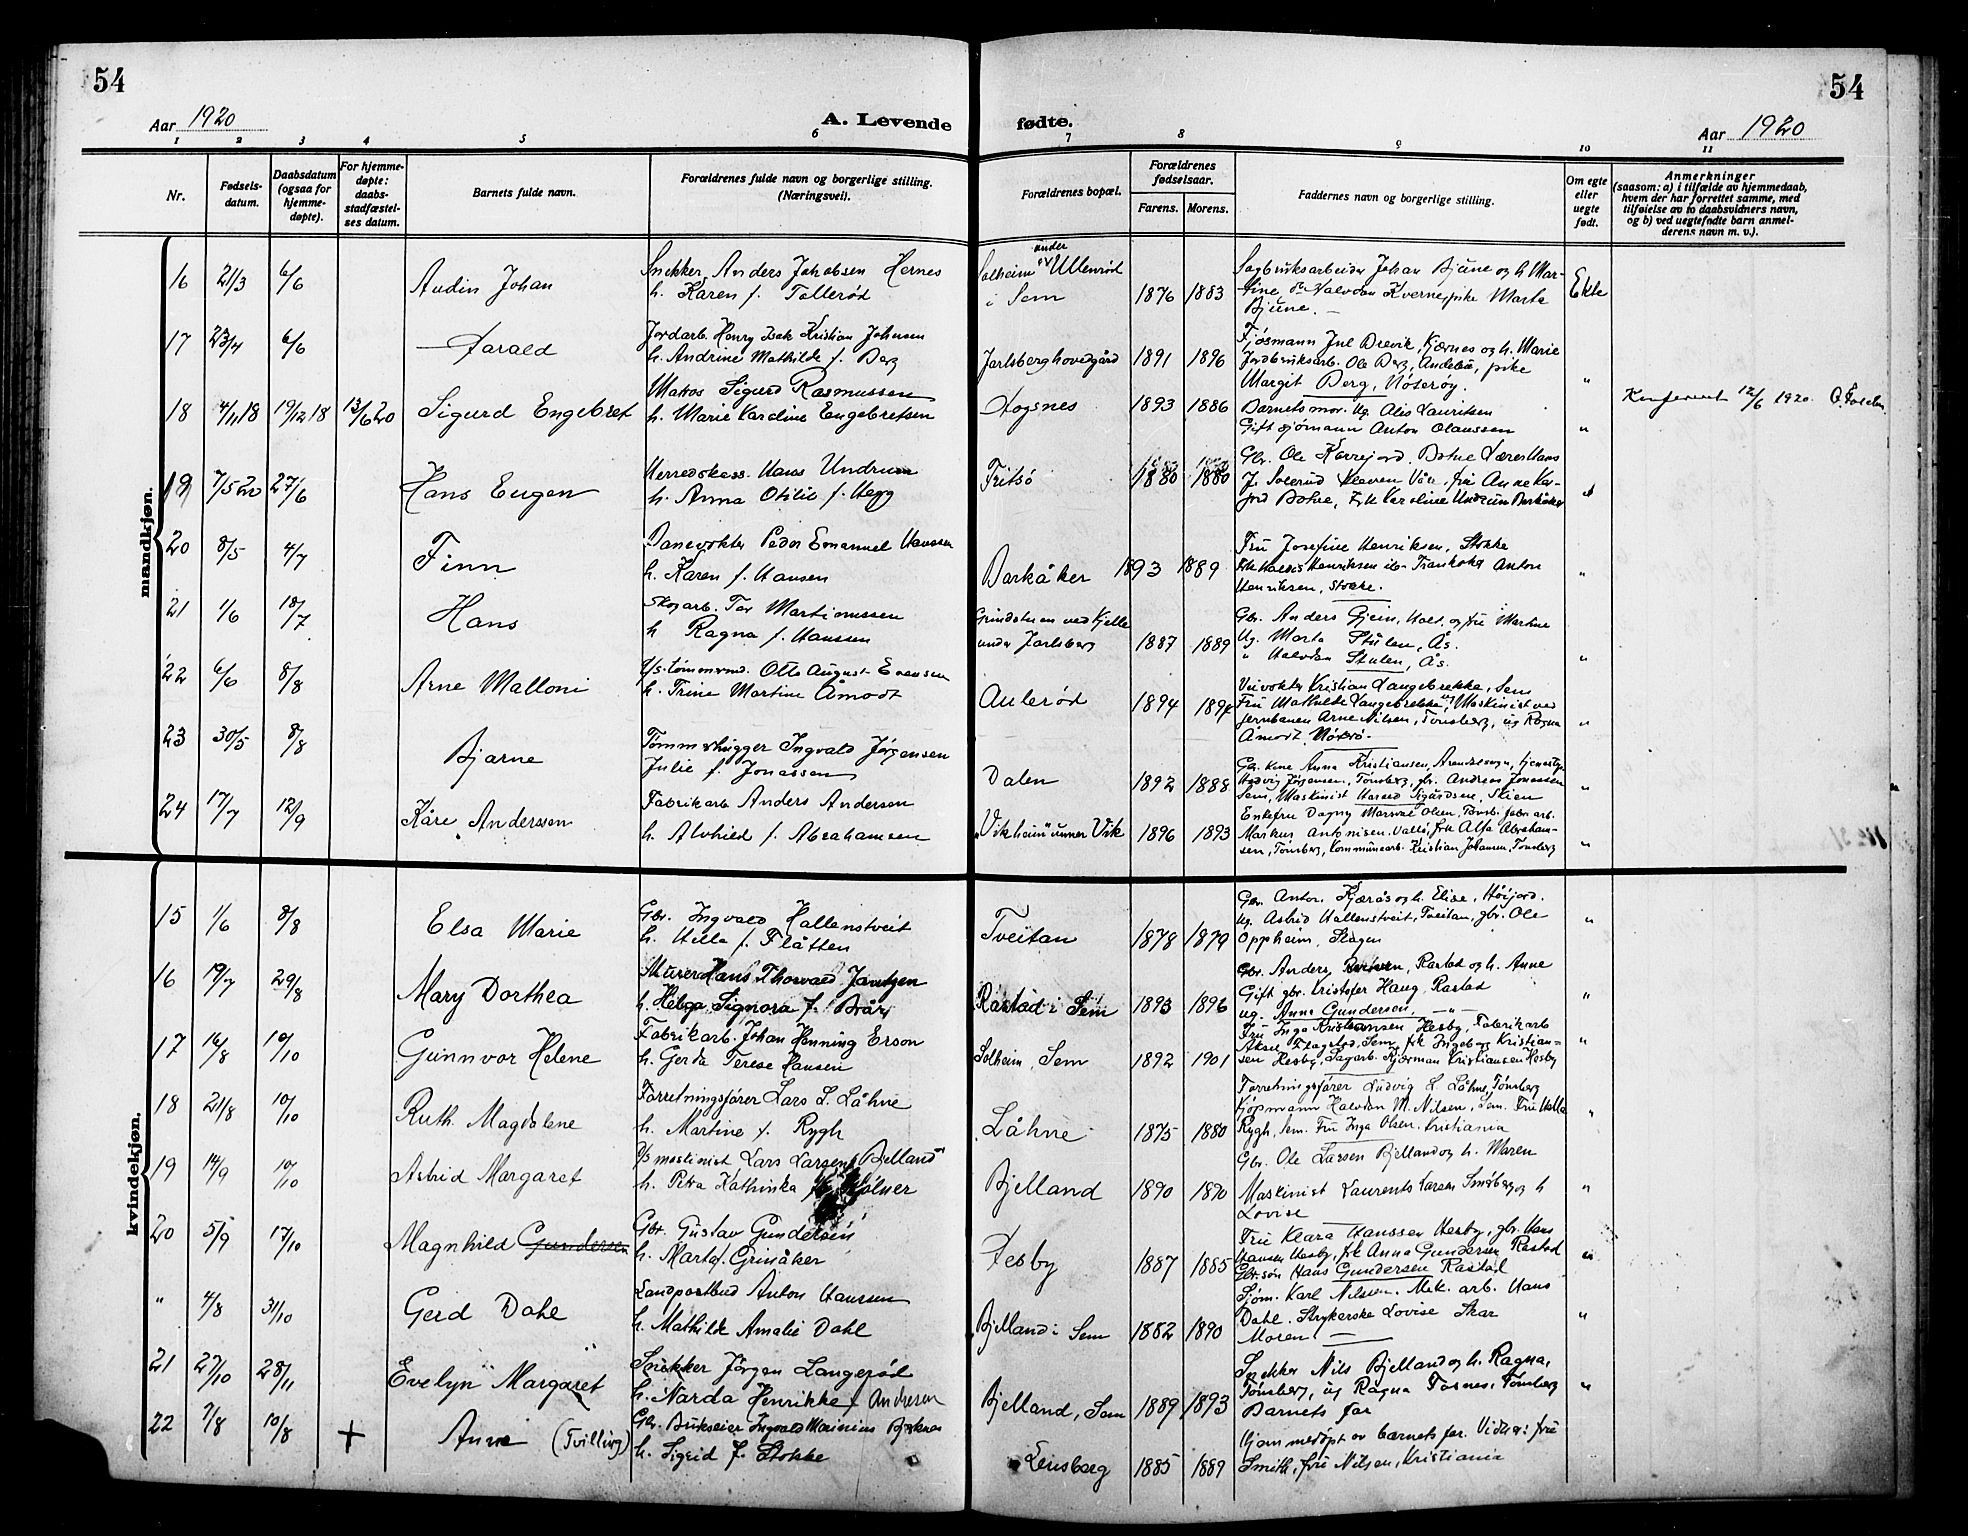 54
54
Aar 1920
A. Levende fødte.
Aar 1920
1 2 3 4 5 6 7 8 9 10 11
Nr.
Fødsels-
datum.
Daabsdatum
(ogsaa for
hjemme-
døpte).
For hjemme-
døpte:
daabs-
stadfæstel-
ses datum.
Barnets fulde navn.
Forældrenes fulde navn og borgerlige stilling.
(Næringsvei).
Forældrenes bopæl.
Forældrenes
fødselsaar.
Farens. Morens.
Faddernes navn og borgerlige stilling.
Om egte
eller
uegte
født.
Anmerkninger
(saasom: a) i tilfælde av hjemmedaab,
hvem der har forrettet samme, med
tilføielse av to daabsvidners navn,
og b) ved uegtefødte barn anmel-
derens navn m. v.).
mandkjøn.
16 21/3 6/6 Audin Johan
Snekker Anders Jakobsen Hernes
h. Karen f. Tollerød
Solheim under Ullenrød
i Sem
1876 1883
Sagbruksarbeider Johan Bjune og h. Mar-
tine, Halvdan Kverne, pike Marta
Bjune.
Ekte
17 23/4 6/6 Harald
Jordarb. Henry Isak Kristian Johnsen
h. Andrine Mathilde f. Berg
Jarlsberg hovedgård 1891 1896
Fjøsmann Jul Brevik, Kjærnes og h. Marie
Jordbruksarb. Ole Berg, Andebu, pike
Margit Berg, Nøterøy. "
18 4/11 18 19/12 18 13/6 20 Sigurd Engebret
Matros Sigurd Rasmussen
h. Marie Karoline Engebretsen
Hogsnes 1893 1886
Barnets mor. Ug. Alis Lauritsen
Gift sjømann Anton Olaussen "
12/6 1920.
19 7/5 20 27/6 Hans Eugen
Herredskass. Hans Undrum
h. Anna Otilie f. Hegg
Fritsø 1880 1880
Gbr. Ole Karrejord, Hans
frk Karoline Undrum Barkåker
20 8/5 4/7 Finn
Banevokter Peder Emanuel Hanssen
h. Karen f. Hansen
Barkåker 1893 1889
Fru Josefine Henriksen, Stokke
Anton
Henriksen, Stokke. "
21 1/6 18/7 Hans
Skogarb. Tor Martinussen
h Ragna f. Hanssen
Grindstuen ved Kjelle
under Jarlsberg 1887 1889
Gbr. Anders Gjein, og fru Martine
Ug. Marta Stulen, Ås.
" Halvdan Stulen, Ås. "
22 6/6 8/8 Arne Malloni
Otto August Evensen
h. Trine Martine Åmodt
Aulerød 1894
Veivokter Kristian Langebrekke, Sem
Fru Mathilde Langebrekke, Maskinist ved
jernbanen Arne Nilsen, Tønsberg, ug Ragna
Åmodt "
23 30/5 8/8 Bjarne
Tømmerhugger Ingvald Jørgensen
Julie f. Jonassen
Dalen 1892 1888
Anna Kristiansen,
Hedvig Jørgensen, Tønsberg, gbr. Andreas Jonassen
Sem, Maskinist Skien "
24 17/7 12/9 Kåre Anderssen
Fabrikarb Anders Andersen
h. Alvhild f. Abrahamsen
"Vikheim" unner Vik 1896 1893
Enkefru Dagny Olsen, Tønsb. fabr. arb.
Markus Antonisen, Valle, frk Alfa Abraham-
sen, Tønsberg, Kommunearb. Kristian Johansen, Tønsberg "
kvindekjøn.
15 1/6 8/8 Elsa Marie
Gbr. Ingvald Hallenstveit
h. Helle f. Flåtten
Tveitan 1878 1879
Gbr. Anton Kjærås og h. Elise, Høijord.
Ug. Astrid Hallenstveit, Tveitan, gbr. Ole
Oppheim, Slagen "
16 19/7 29/8 Mary Dorthea
Murer Hans Thorvald Jantzen
h. Helga Signora f. Bråy
Råstad i Sem 1893 1896
Gbr. Anders Rastad og h. Anne
Gift gbr. Kristofer Haug, Rastad
ug. Anna Gundersen, — " — "
17 16/8 10/10 Gunnvor Helene
Fabrikarb. Johan Henning Erson
h. Gerda Terese Hansen
Solheim, Sem 1892 1901
Fru Inga Kristiansen Hesby, Fabrikarb
Aksel Flagstad, Sem, frk Ingeborg Kristian-
sen Hesby, Sagarb. Hjerman Kristiansen Hesby "
18 21/8 10/10 Ruth Magdalene
Forretningsfører Lars L. Låhne
h. Martine f. Rygh
Låhne 1875 1880
Forretningsfører Ludvig L. Låhne, Tønsberg
Kjøpmann Halvdan M. Nilsen, Sem. Fru Helle
Rygh, Sem. Fru Inga Olsen. Kristiania "
19 14/9 10/10 Astrid Margaret
maskinist Lars Larsen Bjelland
h. Petra Kathinka
Bjelland 1890 1890
Gbr. Ole Larsen Bjelland og h. Maren
Maskinist Laurents Larsen Smørberg og h
Lovise "
20 5/9 17/10 Magnhild Gundersen
Gbr. Gustav Gundersen
h. Marta f. Grinåker
Hesby 1887 1885
Fru Klara Hanssen Hesby, gbr. Hans
Hansen Hesby, frk Anna Gundersen Rastad
Gbr.søn Hans Gundersen Rastad "
" 4/8 31/10 Gerd Dahl
Landpostbud Anton Hanssen
h. Mathilde Amalie Dahl
Bjelland i Sem 1882 1890
Sjøm. Karl Nilsen. Mek. arb. Hans
Dahl. Strykerske Lovise Skar
Moren. "
21 27/10 28/11 Evelyn Margaret
Snekker Jørgen Langerød
h. Narda Henrikke f. Andresen
Bjelland, Sem 1889 1893
Snekker Nils Bjelland og h. Ragna,
Tønsberg, ug Ragna Tønsberg
Barnets far "
22 7/8 10/8 + Anne (Tvilling)
Gbr. Brukseier Ingvald Marinius
h. Sigrid f. Stokke
Leinsberg 1885 1889
Hjemmedøpt av barnets far. Vidner: fru
Smith, fru Nilsen, Kristiania